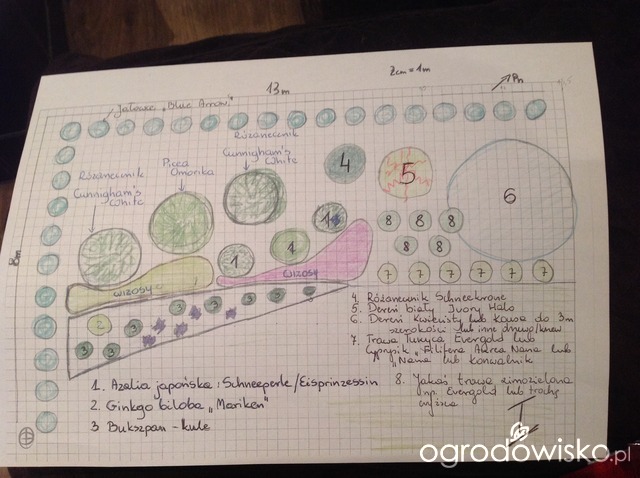 2cm = 1m
13m
Pn
Jałowce „Blue Arrow"
Różanecznik
Cunnigham's
White
Picea
Omorika
Różanecznik
Cunnigham's
White
4
5
6
1
8 8 8
1
1
8 8
8m
wrzosy
wrzosy
7 7 7 7 7 7
2
3 3 3 3 3 3 3 3
4. Różanecznik Schneekrone
5. Dereń biały Ivory Halo
6. Dereń kwiecisty lub kousa do 3m
szerokości lub inne drzewo/krzew
7. Trawa Turzyca Evergold lub
cyprysik „Filifera Aurea Nana lub
„Nana lub konwalnik
8. Jakaś trawa zimozielona
np. Evergold lub trochę
wyższa
1. Azalia japońska: Schneeperle/Eisprinzessin
2. Ginkgo biloba „Mariken"
3 Bukszpan - kule
ogrodowisko.pl